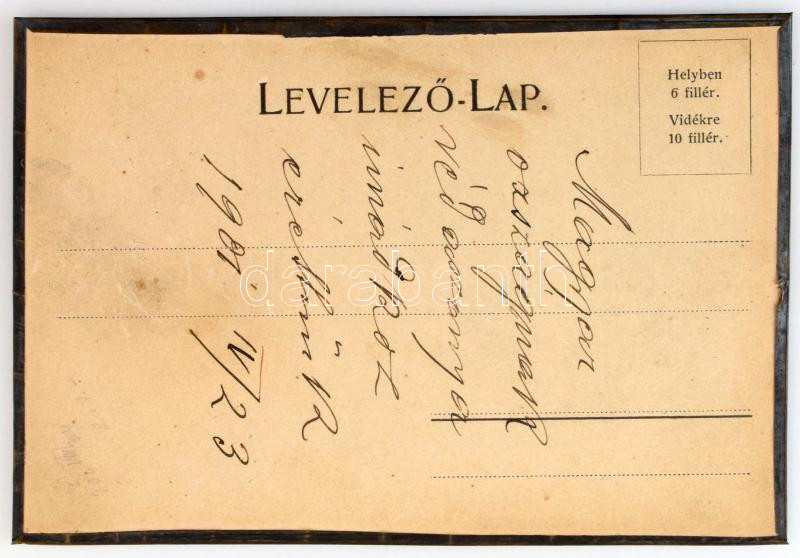 LEVELEZŐ-LAP.
Helyben
6 fillér.
Vidékre
10 fillér.
Magyar
országnak
védasszonya
imádkoz
érettünk
1981 IV/23
darabanth